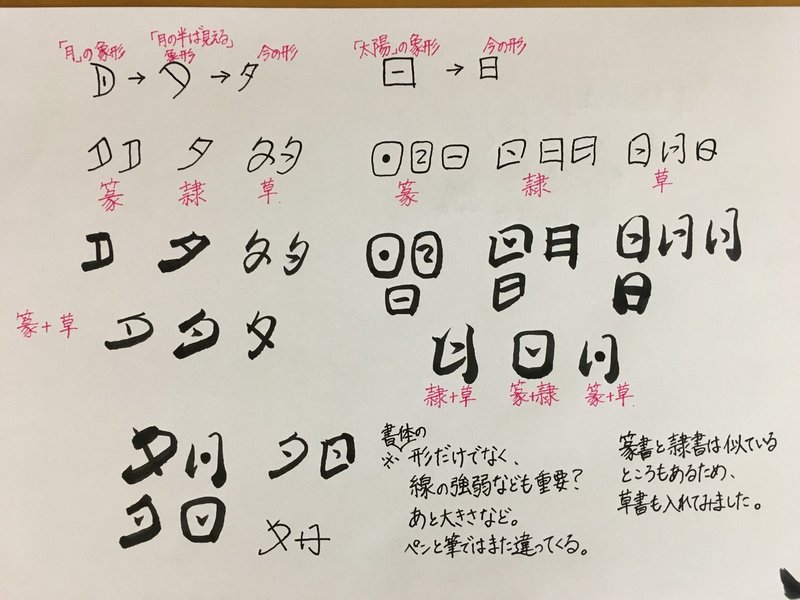 「月」の象形
「月の半ば見える」
象形
今の形
D → D → 夕
「太陽」の象形
今の形
日 → 日
夕 夕夕
篆 隷 草
日 日日 日
篆 隷 草
夕 夕夕
日 日 日
篆+草
夕
隷+草 篆+隷 篆+草
夕日 夕日
夕日 夕日
書体の
※形だけでなく、
線の強弱なども重要?
あと大きさなど。
ペンと筆ではまた違ってくる。
篆書と隷書は似ている
ところもあるため、
草書も入れてみました。